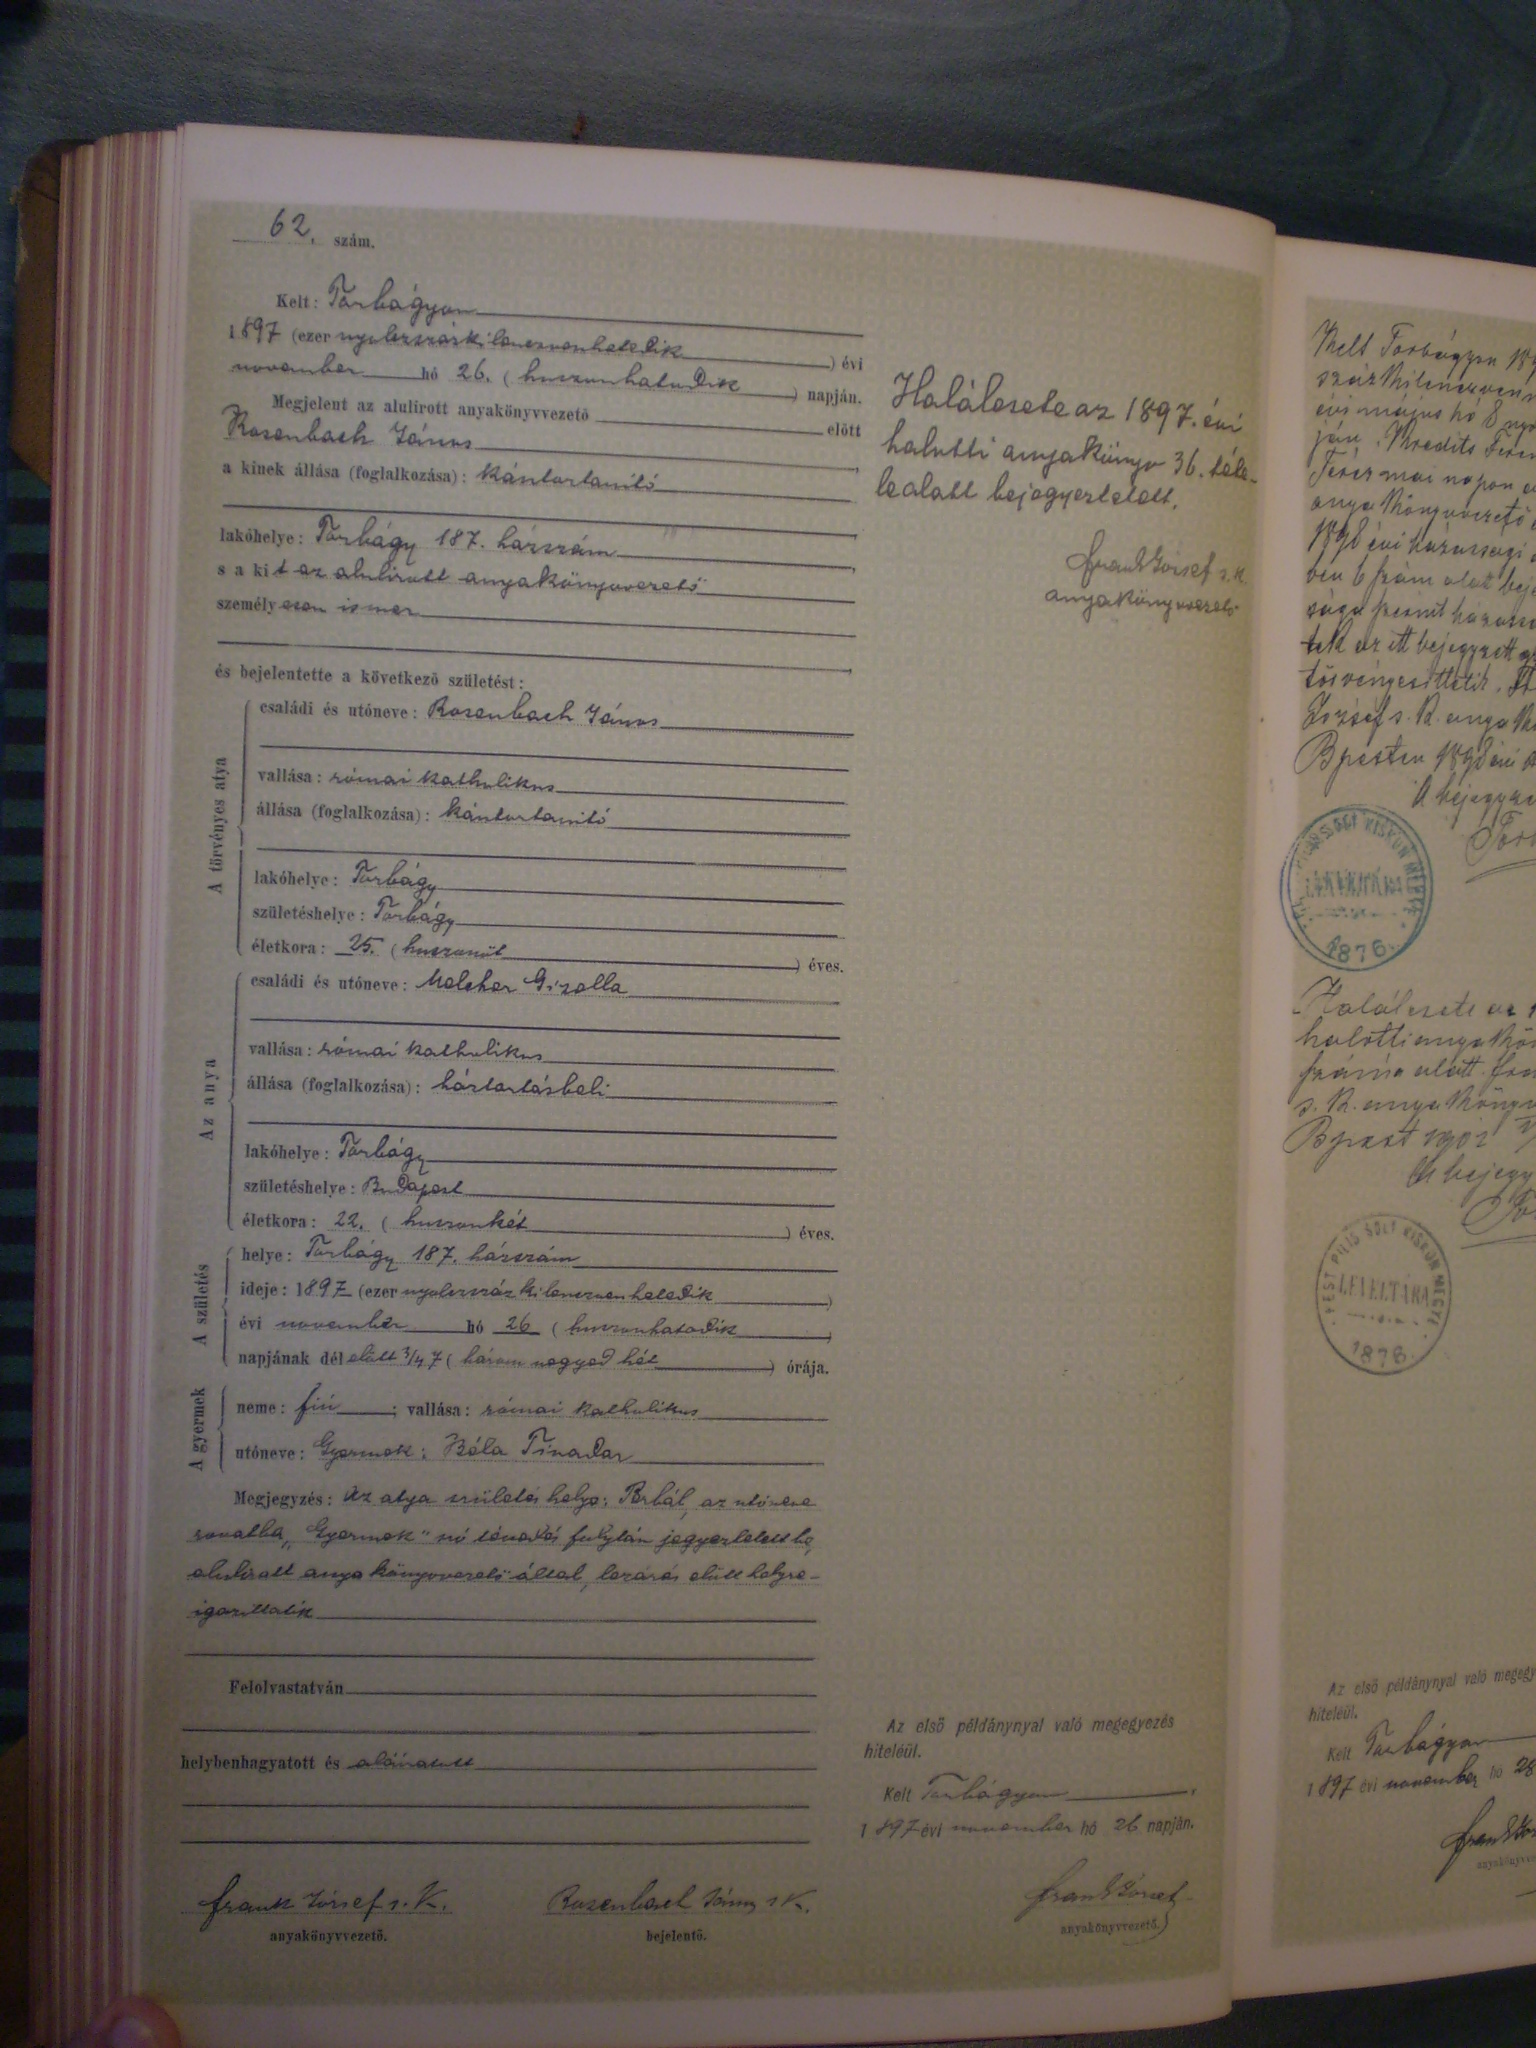 62. szám.
Kelt: Torbágyon
1897 (ezer nyolczszázkilenczvenhetedik) évi
november hó 26. (huszonhatodik) napján.
Megjelent az alulirott anyakönyvvezető előtt
Rosenbach János
a kinek állása (foglalkozása): kántortanító
lakóhelye: Torbágy 187. házszám
s a kit az alulirott anyakönyvvezető
személyesen ismer
és bejelentette a következő születést:
A törvényes atya
családi és utóneve: Rosenbach János
vallása: római katholikus
állása (foglalkozása): kántortanító
lakóhelye: Torbágy
születéshelye: Torbágy
életkora: 25. (huszonöt) éves.
Az anya
családi és utóneve: Melcher Gizella
vallása: római katholikus
állása (foglalkozása): háztartásbeli
lakóhelye: Torbágy
születéshelye: Budapest
életkora: 22. (huszonkét) éves.
A születés
helye: Torbágy 187. házszám
ideje: 1897 (ezer nyolczszáz kilenczvenhetedik)
évi november hó 26 (huszonhatodik)
napjának dél előtt 3/4 7 (három negyed hét) órája.
A gyermek
neme: fiú; vallása: római katholikus
utóneve: Gyermek: Béla Tivadar
Megjegyzés: Az atya születés helye: Perbál, az utóneve
rovatba „Gyermek" szó tévedés folytán jegyeztetett be,
alulirott anyakönyvvezető által, lezárás előtt helyre-
igazíttatik
Felolvastatván
helybenhagyatott és aláíratott
Frank József s. k.
anyakönyvvezető.
Rosenbach János s k.
bejelentő.
Halálesete az 1897. évi
halotti anyakönyv 36. téte-
le alatt bejegyeztetett.
Frank József s. k.
anyakönyvvezető
Az első példánynyal való megegyezés
hiteléül.
Kelt Torbágyon
1897 évi november hó 26 napján.
Frank József
anyakönyvvezető.
Kelt Torbágyon
évi május hó 8
ján. Kredits
Teréz mai napon
anyakönyvvezető
1898 évi házassági
ven 6 szám alatt
tek az itt bejegyzett
törvényesíttetik.
József s. k.
Bpesten 1898 évi
A bejegyzé
KISKUN MEGYE
LEVÉLTÁRA
1876.
Halálesete az 1
halotti anyakön
száma alatt.
s. k. anyakönyv
Bpest 1902
A bejegy
PEST PILIS SOLT KISKUN MEGYE
LEVÉLTÁRA
1876.
Az első példánynyal való megegy
hiteléül.
Kelt Torbágyon
1897 évi november hó 28